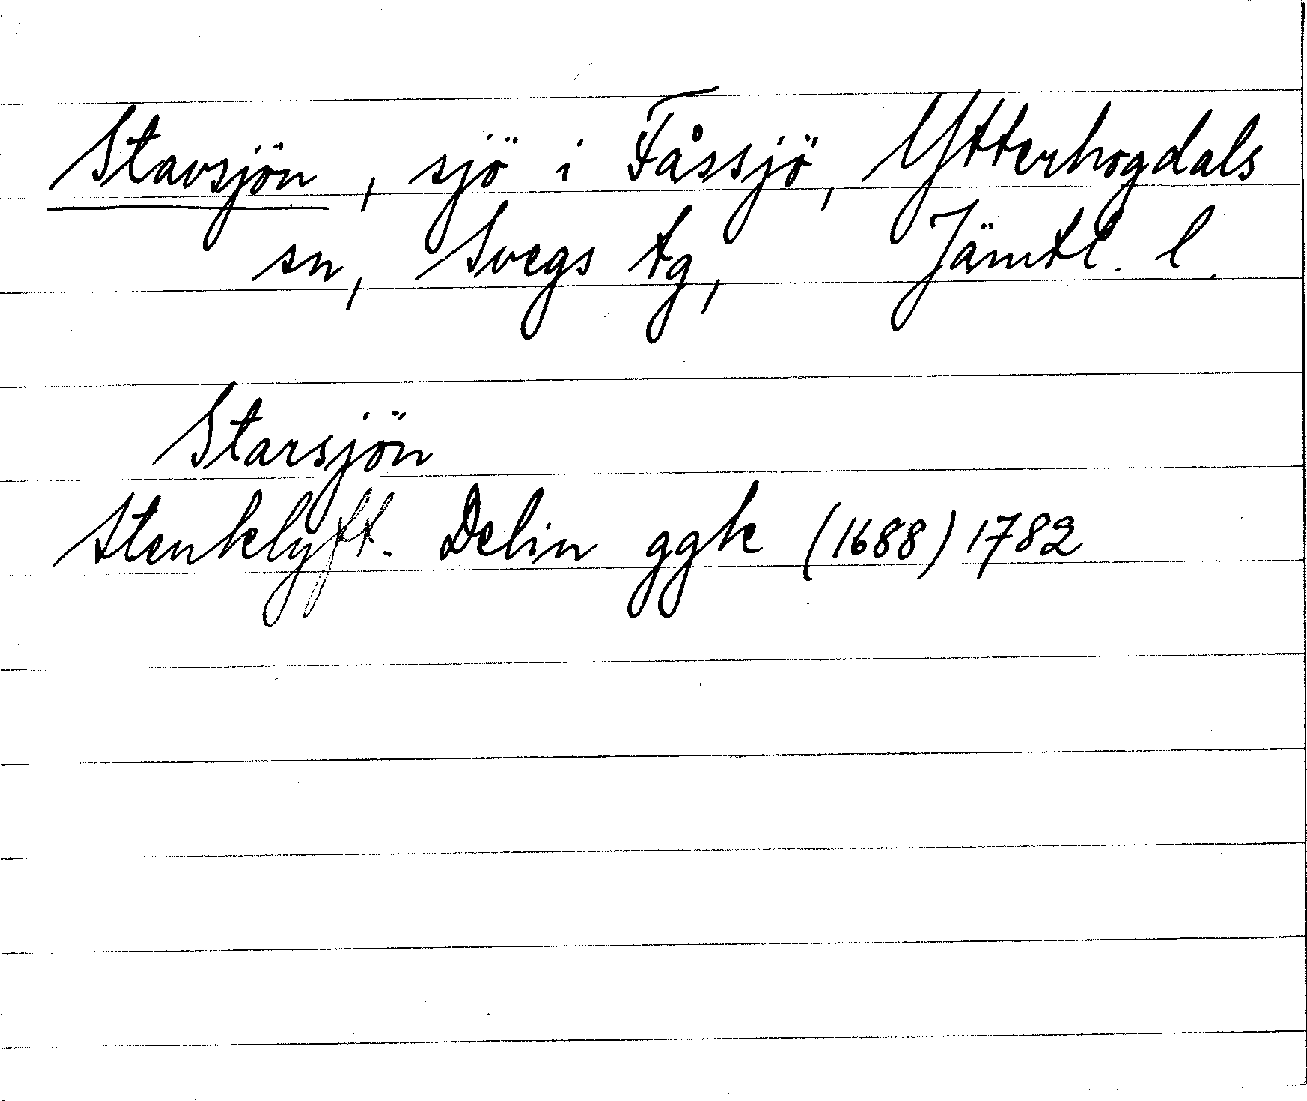 Stavsjön, sjö i Fåssjö, Ytterhogdals
sn, Svegs tg, Jämtl. l.
Starsjön
Stenklyft. Delin ggk (1688) 1782